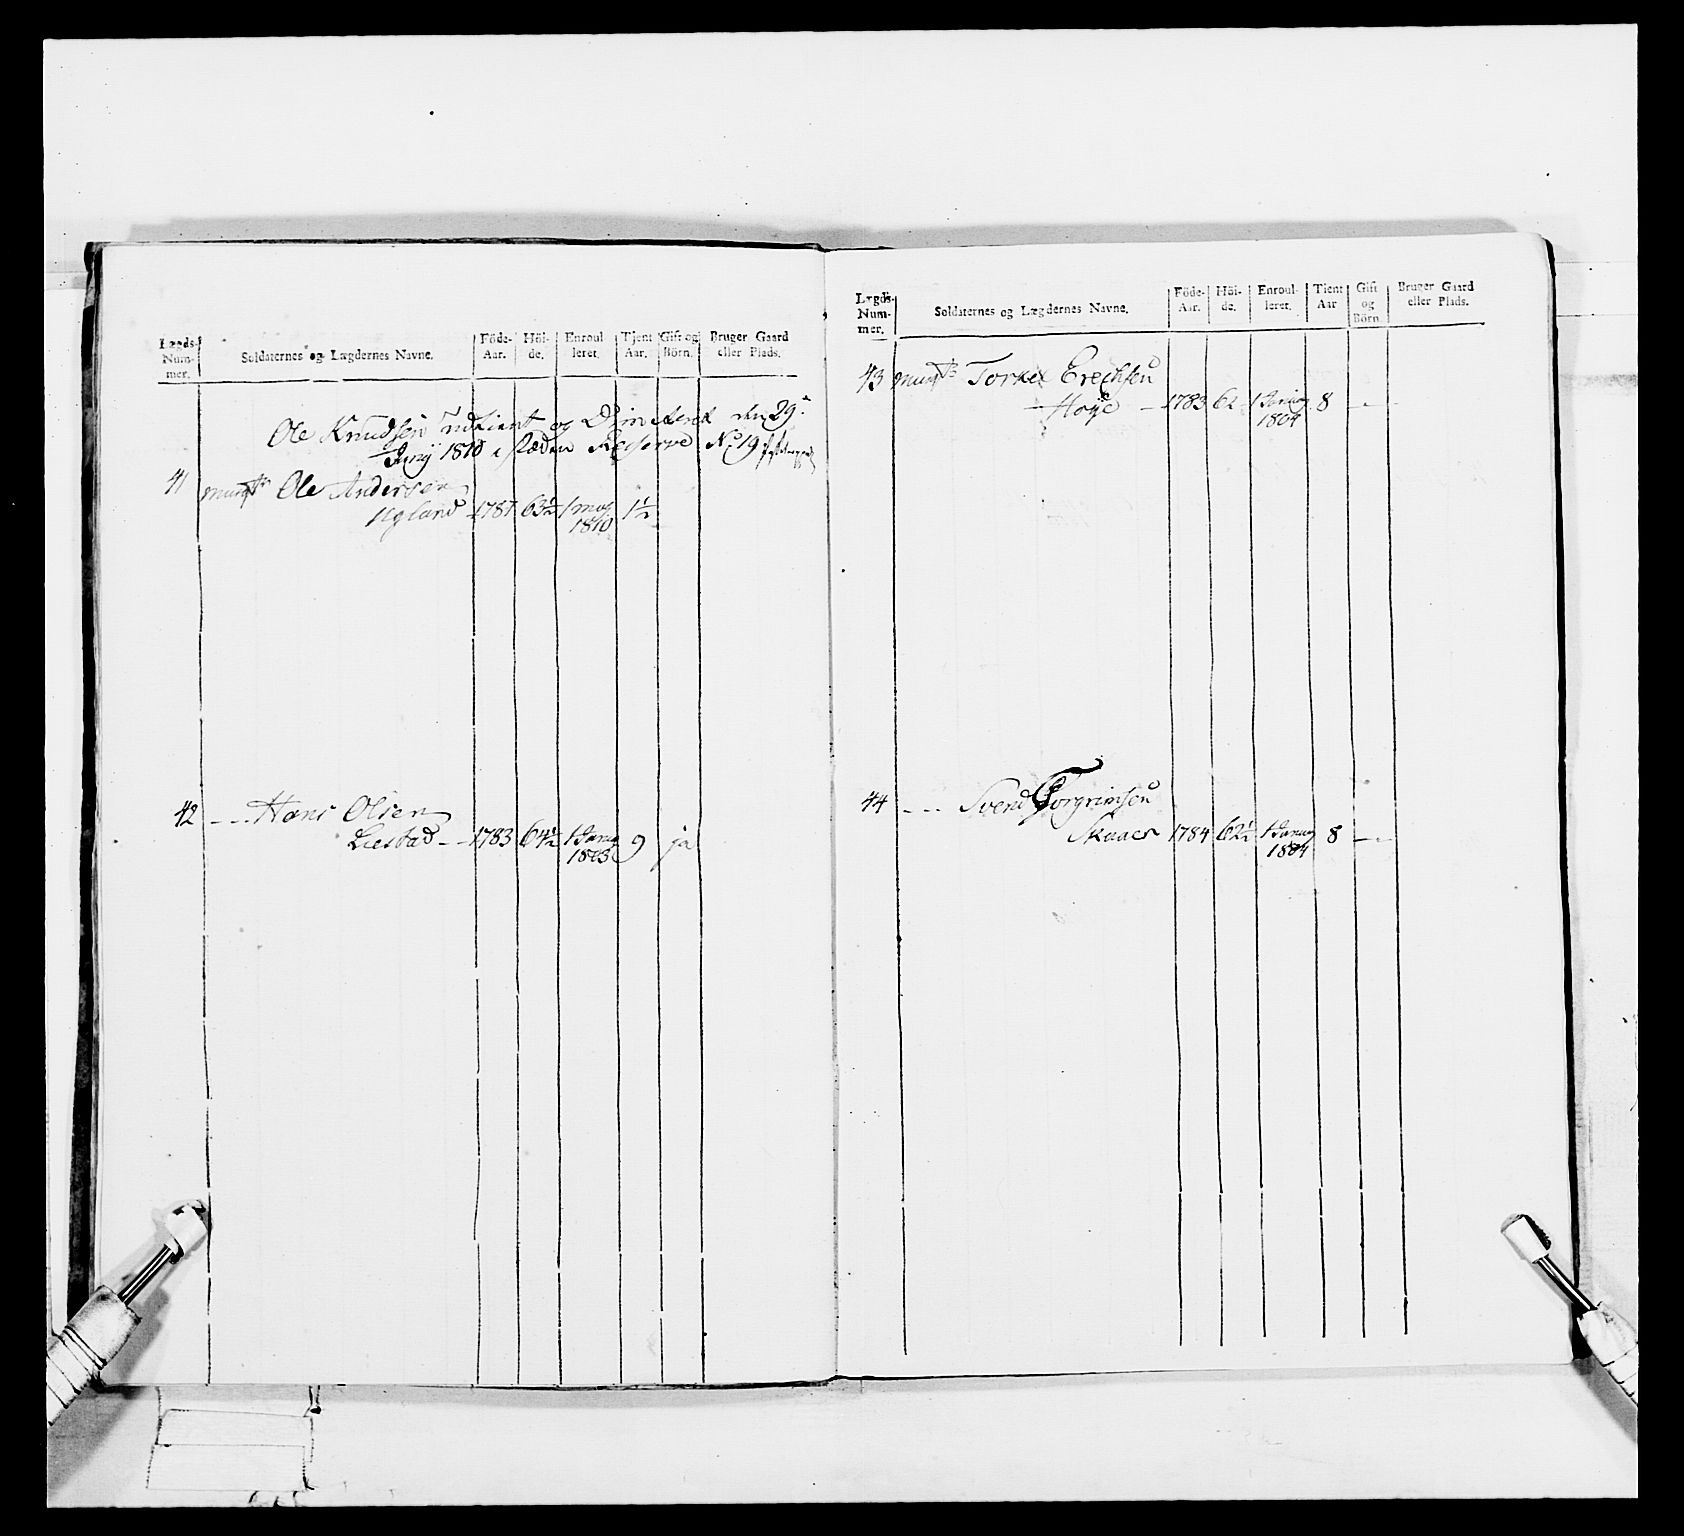 Lægds-Num-mer. Soldaternes og Lægdernes Navne. Föde-Aar. Höi-de. Enroul leret. Tjent Aar. Gift og Börn. Bruger Gaard eller Plads.
Ole Knudsen udtient og Dimiteret den 29.
Junÿ 1810 i stæden Reserve No 19
41 Ole Andersen
Ugland 1787 63½ 1 may 1810 1½
42 - - - Hans Olsen
Liestad - - 1783 64½ 1 Janug 1803 9 ja
Lægds-Num-mer. Soldaternes og Lægdernes Navne. Föde-Aar. Höi-de. Enroul-leret. Tient Aar Gift og Börn. Bruger Gaard eller Plads.
43 Torkel Erechsen
Høÿe - 1783 62 1 Janug 1804 8 - -
44 - - - Svend Torgrimsen
Skaaer 1784 62½ 1 Janug 1804 8 - -